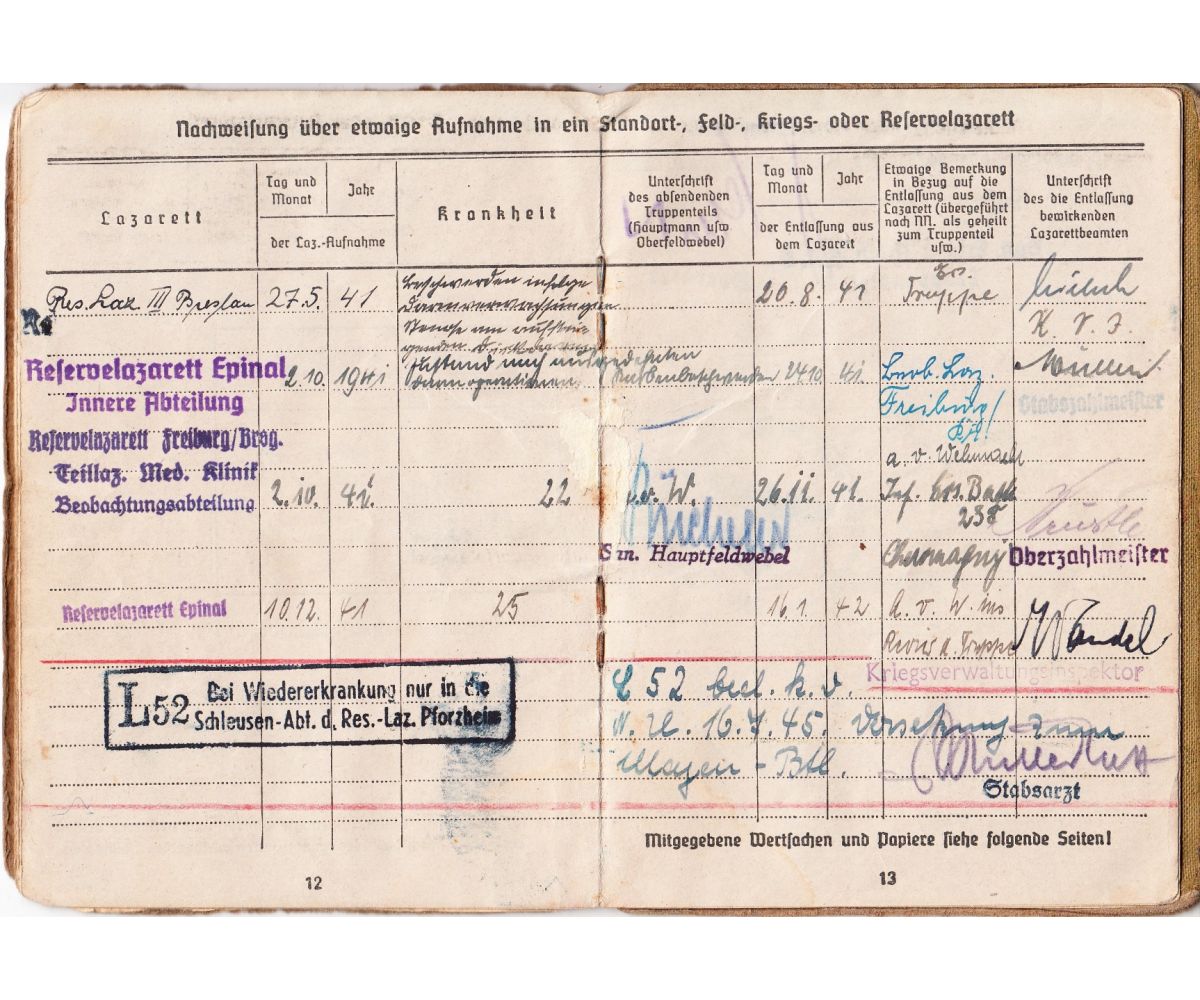 Nachweisung über etwaige Aufnahme in ein Standort-, Feld-, Kriegs- oder Reservelazarett
Lazarett
Tag und Monat
Jahr
der Laz.-Aufnahme
Krankheit
Unterschrift
des absendenden
Truppenteils
(Hauptmann usw
Oberfeldwebel)
Tag und Monat
Jahr
der Entlassung aus
dem Lazarett
Etwaige Bemerkung
in Bezug auf die
Entlassung aus dem
Lazarett (übergeführt
nach NN. als geheilt
zum Truppenteil
usw.)
Unterschrift
des die Entlassung
bewirkenden
Lazarettbeamten
Res. Laz. III Breslau 27.5. 41
Beschwerden infolge
Darmverwachsungen
20.8. 41
Ers.
Truppe
K. V. I.
Reservelazarett Epinal 2.10. 1941
Innere Abteilung
Zustand nach
24.10 41
Beob. Laz.
Freiburg/
Müller
Stabszahlmeister
Reservelazarett Freiburg/Brsg.
Teillaz. Med. Klinik
Beobachtungsabteilung 2.10. 41. 22
26.11. 41.
a. v. Wehrmacht
Inf. Ers. Batl.
Hauptfeldwebel
Oberzahlmeister
Reservelazarett Epinal 10.12. 41 25
16.1. 42
A. v. W. ins
Revier d. Truppe
Kriegsverwaltungsinspektor
L52 Bei Wiedererkrankung nur in die
Schleusen-Abt. d. Res.-Laz. Pforzheim
L 52 k. v.
N. U. 16.7.45. Versetzung zum
Magen-Btl.
Stabsarzt
Mitgegebene Wertsachen und Papiere siehe folgende Seiten!
12
13